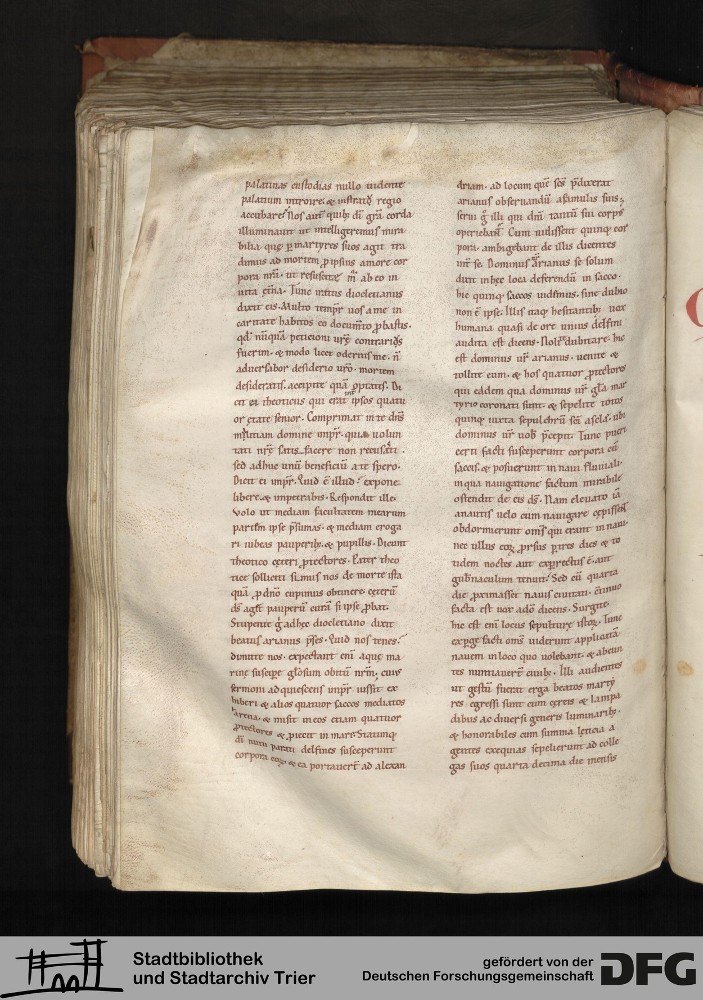 palatinas custodias nullo uidente
palatium introire. & in strato regio
accubare. Nos aut̄ quib; dī gr̄a corda
illuminauit ut intelligeremus mira
bilia que ꝑ martyres suos agit tra
dimus ad mortem ꝓ ipsius amore cor
pora nr̄a. ut resuscitet ab eo in
uita et̄na. Tunc iratus diocletianus
dixit eis. Multo tempr̄ uos a me in
caritate habitos eo documto ꝓbastis.
qd̄ nūquā peticioni ur̄e contrarius
fuerim. & modo licet oderitis me. n̄
aduersabor desiderio ur̄o. mortem
desideratis. accipite quā optatis. Di
cit ei theoticus qui erat int̄ ipsos quatu
or etate senior. Comprimat in te dn̄s
maliciam domine impr̄. quia uolun
tati nr̄e satis facere non recusasti.
sed adhuc unū beneficiū a te spero.
Dicit ei impr̄. Quid ē illud? expone
libere. & impetrabis. Respondit ille.
Volo ut mediam facultatem mearum
partem ipse p̄sumas. & mediam eroga
ri iubeas pauperib; & pupillis. Dicunt
theotico ceteri ꝓtectores. Pater theo
tice solliciti simus nos de morte ista
quā ꝓ dn̄o cupimus obtinere. ceterū
ds̄ aget pauperū curā si ipse ꝓbat.
Stupente g̊ adhec diocletiano dixit
beatus arianus p̄ses. Quid nos tenes?
dimitte nos. expectant enī aque ma
rine suscipe gl̄osum obitū nrm̄. cuius
sermoni adquiescens impr̄ iussit ex
hiberi & alios quatuor saccos mediatos
harena. & misit in eos etiam quatuor
ꝓtectores & ꝓiecit in mare. Statimq;
dī nutu parati delfines susceperunt
corpora eoꝝ. & ea portauert̄ ad alexan
driam. ad locum quē scs̄ p̄dixerat
arianus obseruandū a famulis suis;
serui g̊ illi qui dn̄i tantū sui corpus
operiebant. Cum uidissent quinq; cor
pora. ambigebant de illis dicentes
int̄ se. Dominus ur̄ arianus se solum
dixit in hec loca deferendū in sacco.
hic quinq; saccos uidemus. sine dubio
non ē ipse. Illis itaq; hesitantib; uox
humana quasi de ore unius delfini
audita est dicens. Nolite dubitare. hic
est dominus ur̄ arianus. uenite &
tollite eum. & hos quatuor ꝓtectores
qui eadem qua dominus ur̄ gl̄a mar
tyrio coronati sunt. & sepelite totos
quinq; iuxta sepulchrū scī asclae. ubi
dominus ur̄ uob̄ p̄cepit. Tunc pueri
certi facti susceperunt corpora cū
saccis. & posuerunt in naui fluuiali.
in qua nauigatione factum mirabile
ostendit de eis ds̄. Nam eleuato iā
a nautis uelo cum nauigare cepissent
obdormierunt om̄s qui erant in naui.
nec ullus eoꝝ ꝓrsus ꝑ tres dies & to
tidem noctes aut exprectus ē. aut
gubnaculum tenuit. Sed cū quarta
die ꝓximasset nauis ciuitati. continuo
facta est uox adeo dicens. Surgite.
hic est enī locus sepulture istoꝝ. Tunc
exꝑgefacti om̄s uiderunt applicatā
nauem in loco quo uolebant. & abeun
tes nuntiauert̄ ciuib;. Illi audientes
ut gestū fuerat erga beatos marty
res. egressi sunt cum cereis & lampa
dibus ac diuersi generis luminarib;.
& honorabiles cum summa leticia a
gentes exequias sepelierunt ad colle
gas suos quarta decima die mensis
Stadtbibliothek
und Stadtarchiv Trier
gefördert von der
Deutschen Forschungsgemeinschaft
DFG